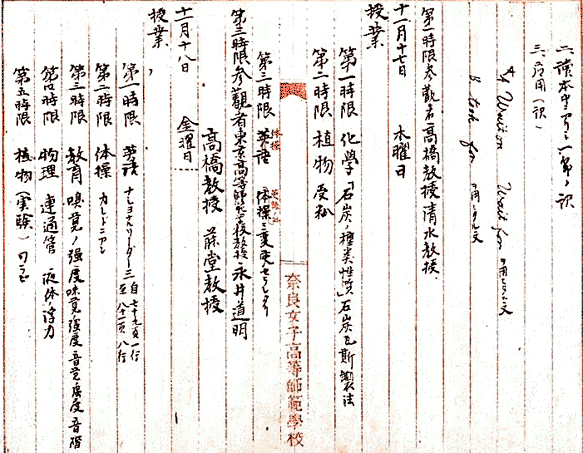 二、讀本中ノ一節ノ訳
三、応用（訳）
A. Wait on Wait for ヲ用ヒタル文
B. took for ヲ用ヒタル文
第一時限参觀者 高橋教授 清水教授
十一月十七日 木曜日
授業
第一時限 化學「石炭ノ種类性質」石炭瓦斯製法
第二時限 植物
奈良女子高等師範學校
第三時限 英語 体操
第三時限参觀者東京高等師範学校教授永井道明
高橋教授 藤堂教授
十一月十八日 金曜日
授業
第一時限 英語 ナショナルリーダー三 自七十九頁一行 至八十一頁八行
第二時限 体操
第三時限 教育 嗅覚ノ强度味覚ノ强度音ノ强度音階
第四時限 物理 連通管 液体ノ浮力
第五時限 植物（実験）